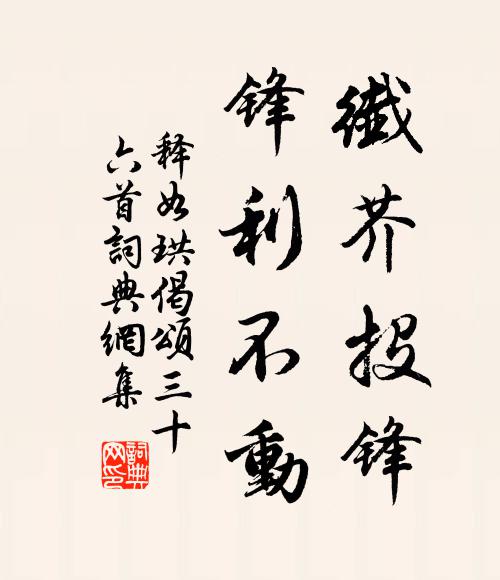 纖芥投锋
锋利不動
释如珙偈頌三十
六首詞典網集
詞典
网印